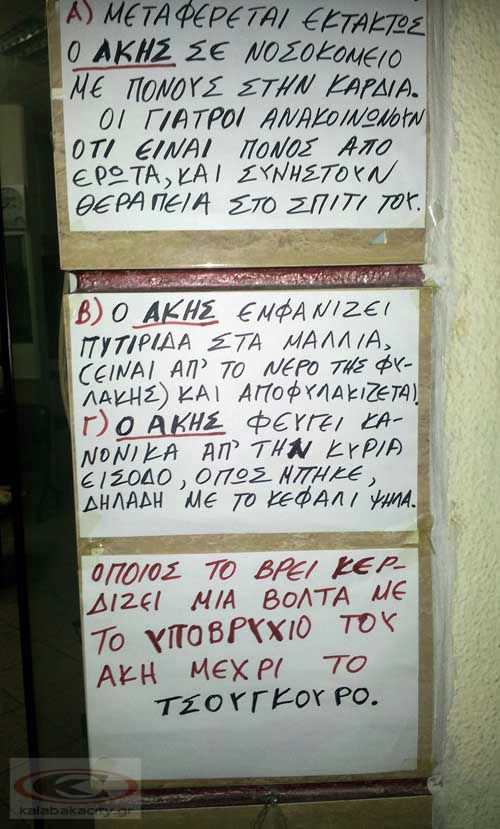 Α) ΜΕΤΑΦΕΡΕΤΑΙ ΕΚΤΑΚΤΩΣ
Ο ΑΚΗΣ ΣΕ ΝΟΣΟΚΟΜΕΙΟ
ΜΕ ΠΟΝΟΥΣ ΣΤΗΝ ΚΑΡΔΙΑ.
ΟΙ ΓΙΑΤΡΟΙ ΑΝΑΚΟΙΝΩΝΟΥΝ
ΟΤΙ ΕΙΝΑΙ ΠΟΝΟΣ ΑΠΟ
ΕΡΩΤΑ, ΚΑΙ ΣΥΝΗΣΤΟΥΝ
ΘΕΡΑΠΕΙΑ ΣΤΟ ΣΠΙΤΙ ΤΟΥ.
Β) Ο ΑΚΗΣ ΕΜΦΑΝΙΖΕΙ
ΠΥΤΙΡΙΔΑ ΣΤΑ ΜΑΛΛΙΑ,
(ΕΙΝΑΙ ΑΠ' ΤΟ ΝΕΡΟ ΤΗΣ ΦΥ-
ΛΑΚΗΣ) ΚΑΙ ΑΠΟΦΥΛΑΚΙΖΕΤΑΙ
Γ) Ο ΑΚΗΣ ΦΕΥΓΕΙ ΚΑ-
ΝΟΝΙΚΑ ΑΠ' ΤΗΝ ΚΥΡΙΑ
ΕΙΣΟΔΟ, ΟΠΩΣ ΜΠΗΚΕ,
ΔΗΛΑΔΗ ΜΕ ΤΟ ΚΕΦΑΛΙ ΨΗΛΑ.
ΟΠΟΙΟΣ ΤΟ ΒΡΕΙ ΚΕΡ-
ΔΙΖΕΙ ΜΙΑ ΒΟΛΤΑ ΜΕ
ΤΟ ΥΠΟΒΡΥΧΙΟ ΤΟΥ
ΑΚΗ ΜΕΧΡΙ ΤΟ
ΤΣΟΥΓΚΟΥΡΟ.
kalabakacity.gr